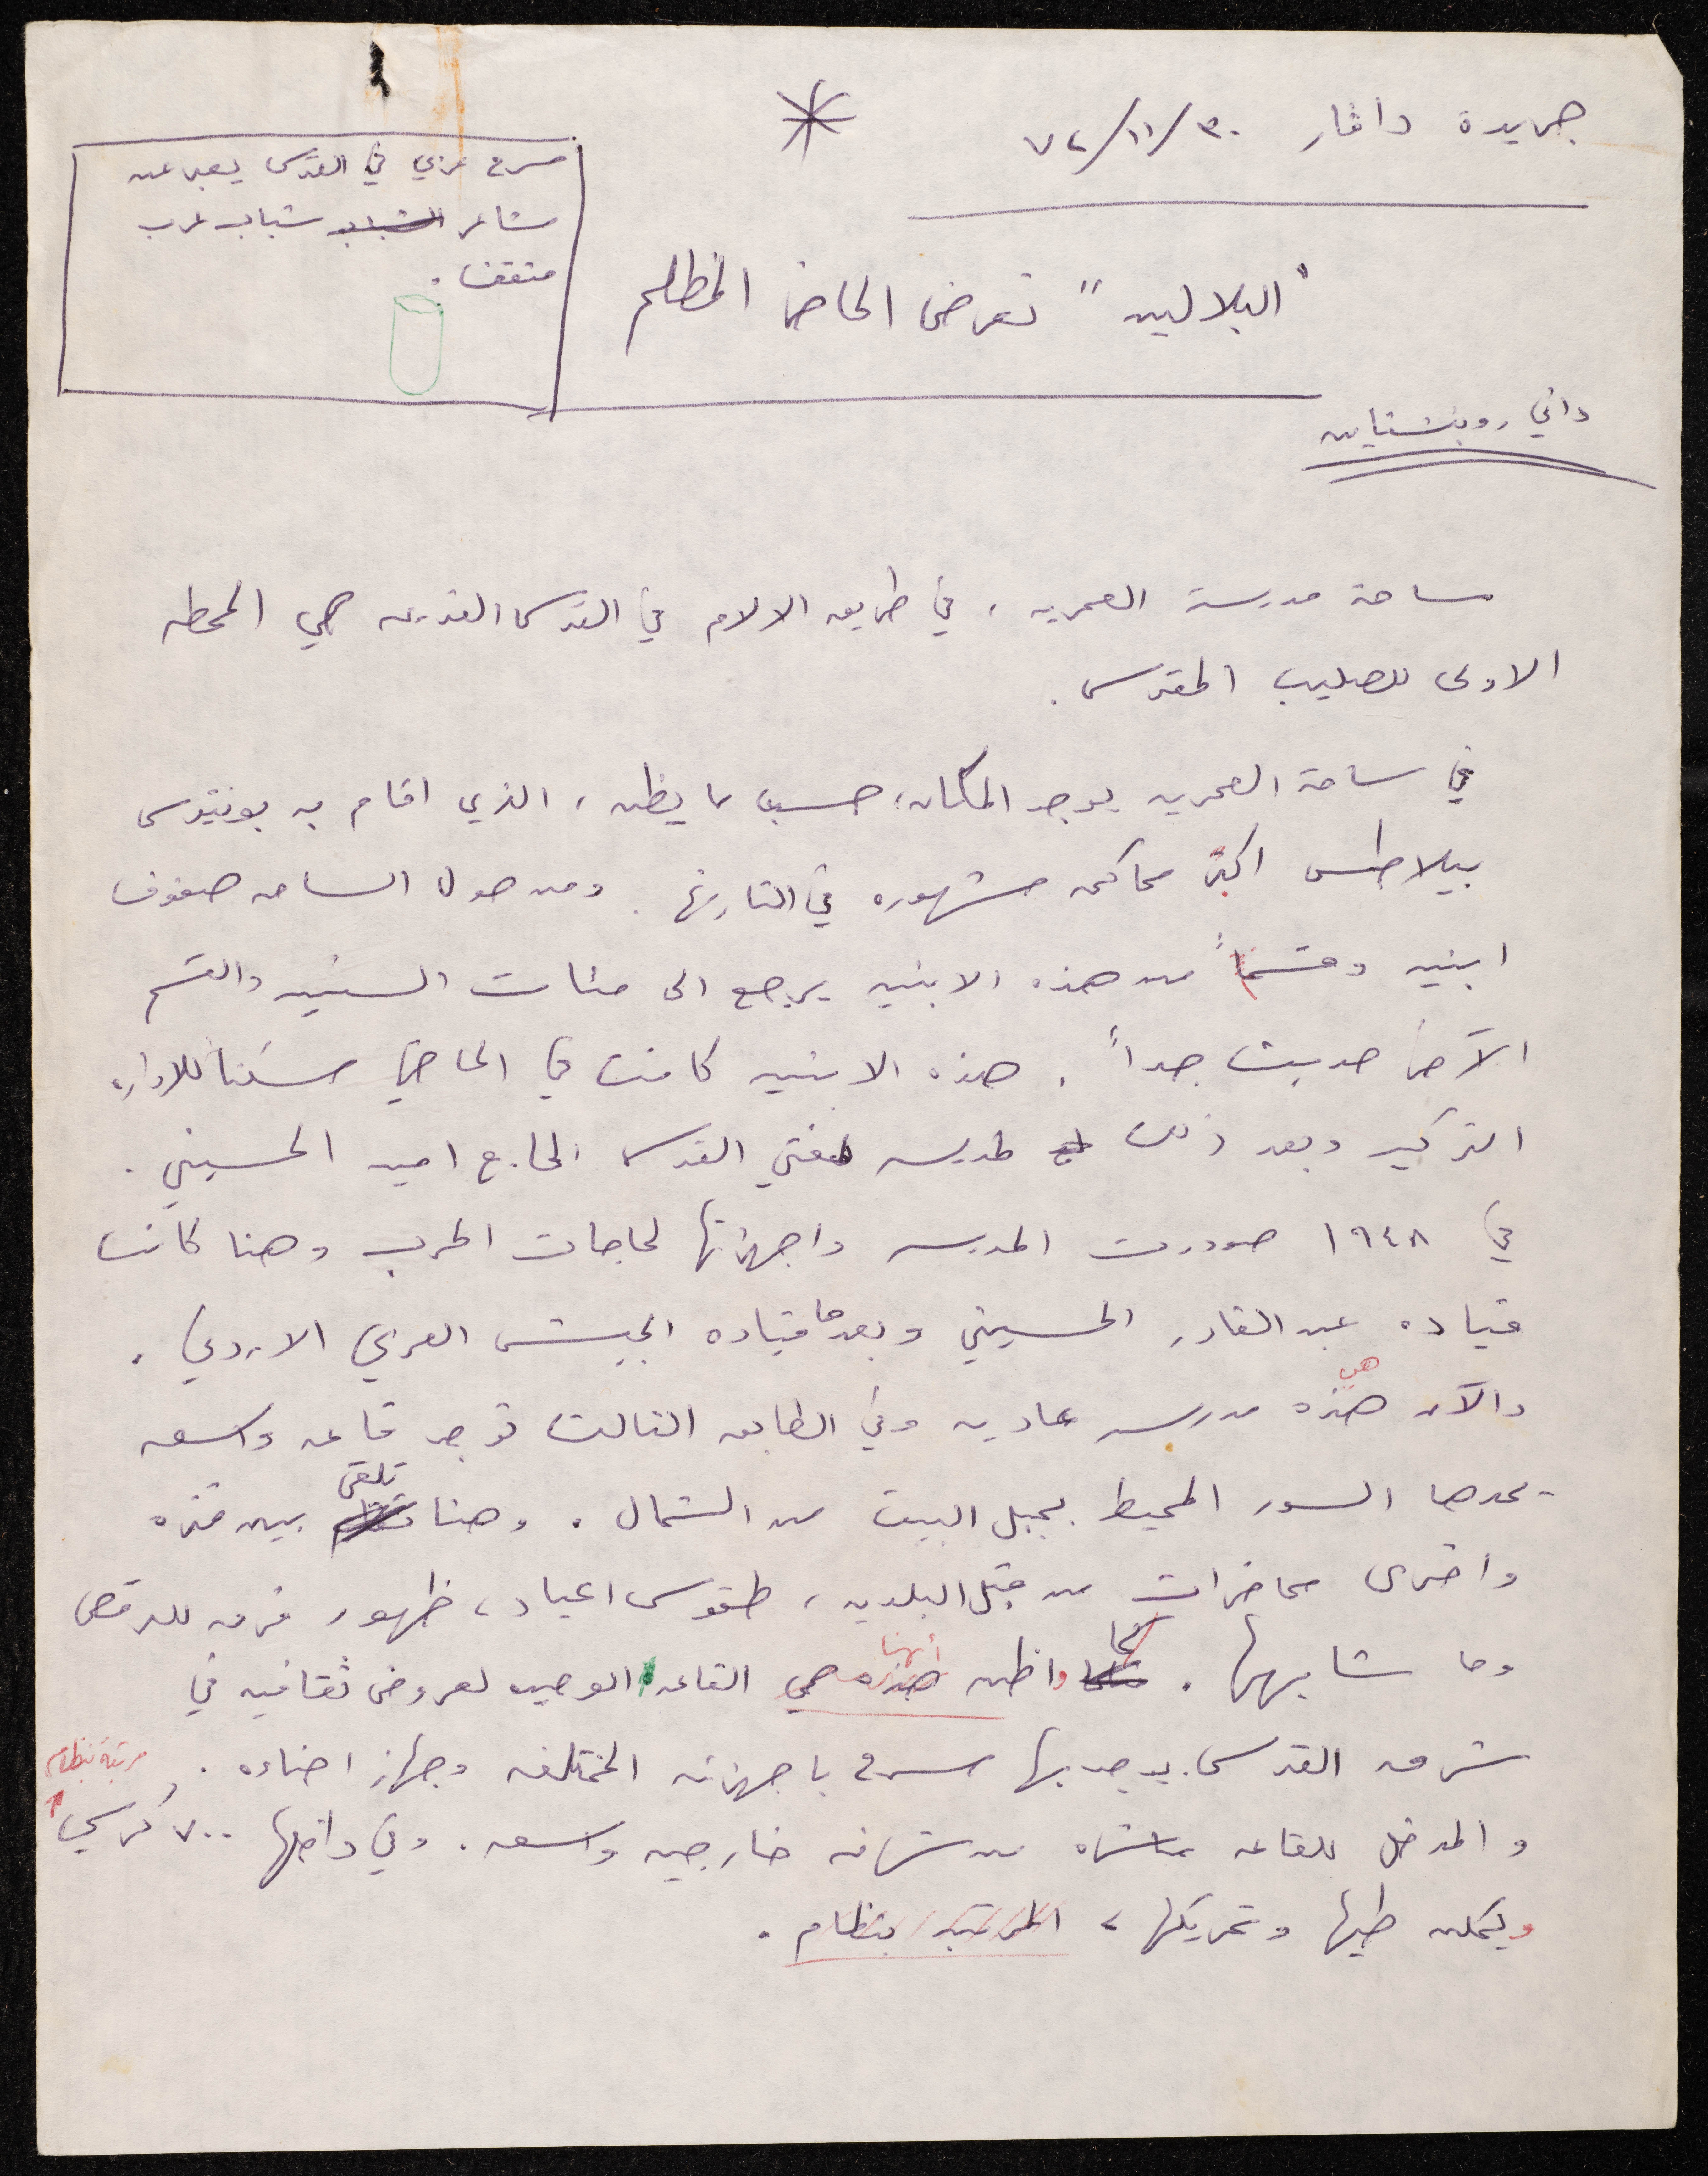 جريدة داڤار ٣٠/١١/٧٢
مسرح عربي في القدس يعبر عن
مشاعر شباب عرب
مثقف.
"البلالين" تعرض الحاضر المظلم
داني روبنشتاين
ساحة مدرسة العمريه، في طريق الالام في القدس القديمه هي المحطه
الاولى للصليب المقدس.
في ساحة العمريه يوجد المكان، حسب ما يظن، الذي اقام به بونتيوس
بيلاطس اكبر محاكمه مشهوره في التاريخ. ومن حول الساحه صفوف
ابنيه وقسماً من هذه الابنيه يرجع الى مئات السنين والقسم
الآخر حديث جداً. هذه الابنيه كانت في الماضي سكناً للاداره
التركيه وبعد ذلك مدرسه لمفتي القدس الحاج امين الحسيني.
في ١٩٤٨ صودرت المدرسه واجهزتها لحاجات الحرب وهنا كانت
قياده عبد القادر الحسيني وبعدها قياده الجيش العربي الاردني.
هي
والآن هذه مدرسه عاديه وفي الطابق الثالث توجد قاعه واسعه
يحدها السور المحيط بجبل البيت من الشمال. وهنا تلقى بين فتره
واخرى محاضرات من قبل البلديه، طقوس اعياد، ظهور فرق للرقص
وما شابهها. كما واظن أنها هذه هي القاعه الوحيده لعروض ثقافيه في
شرق القدس. يوجد بها مسرح باجهزته المختلفه وجهاز اضاءه. مرتبة بنظام
والمدخل للقاعه مباشره من شرفه خارجيه واسعه. وفي داخلها ٧٠٠ كرسي
ويمكن طيها وتحريكها، المرتبه بنظام.